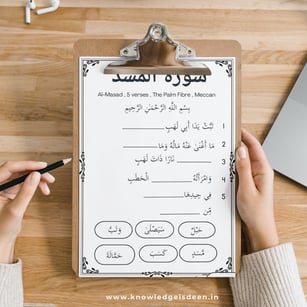 سُورَةُ المَسَد
Al-Masad , 5 verses , The Palm Fibre , Meccan
بِسْمِ اللَّهِ الرَّحْمَٰنِ الرَّحِيمِ
تَبَّتْ يَدَا أَبِي لَهَبٍ__________ 1
مَا أَغْنَىٰ عَنْهُ مَالُهُ وَمَا__________ 2
__________ نَارًا ذَاتَ لَهَبٍ 3
وَامْرَأَتُهُ __________ الْحَطَبِ 4
فِي جِيدِهَا__________ 5
مِّن __________
حَبْلٌ سَيَصْلَىٰ وَتَبَّ
مَّسَدٍ كَسَبَ حَمَّالَةَ
www.knowledgeisdeen.in